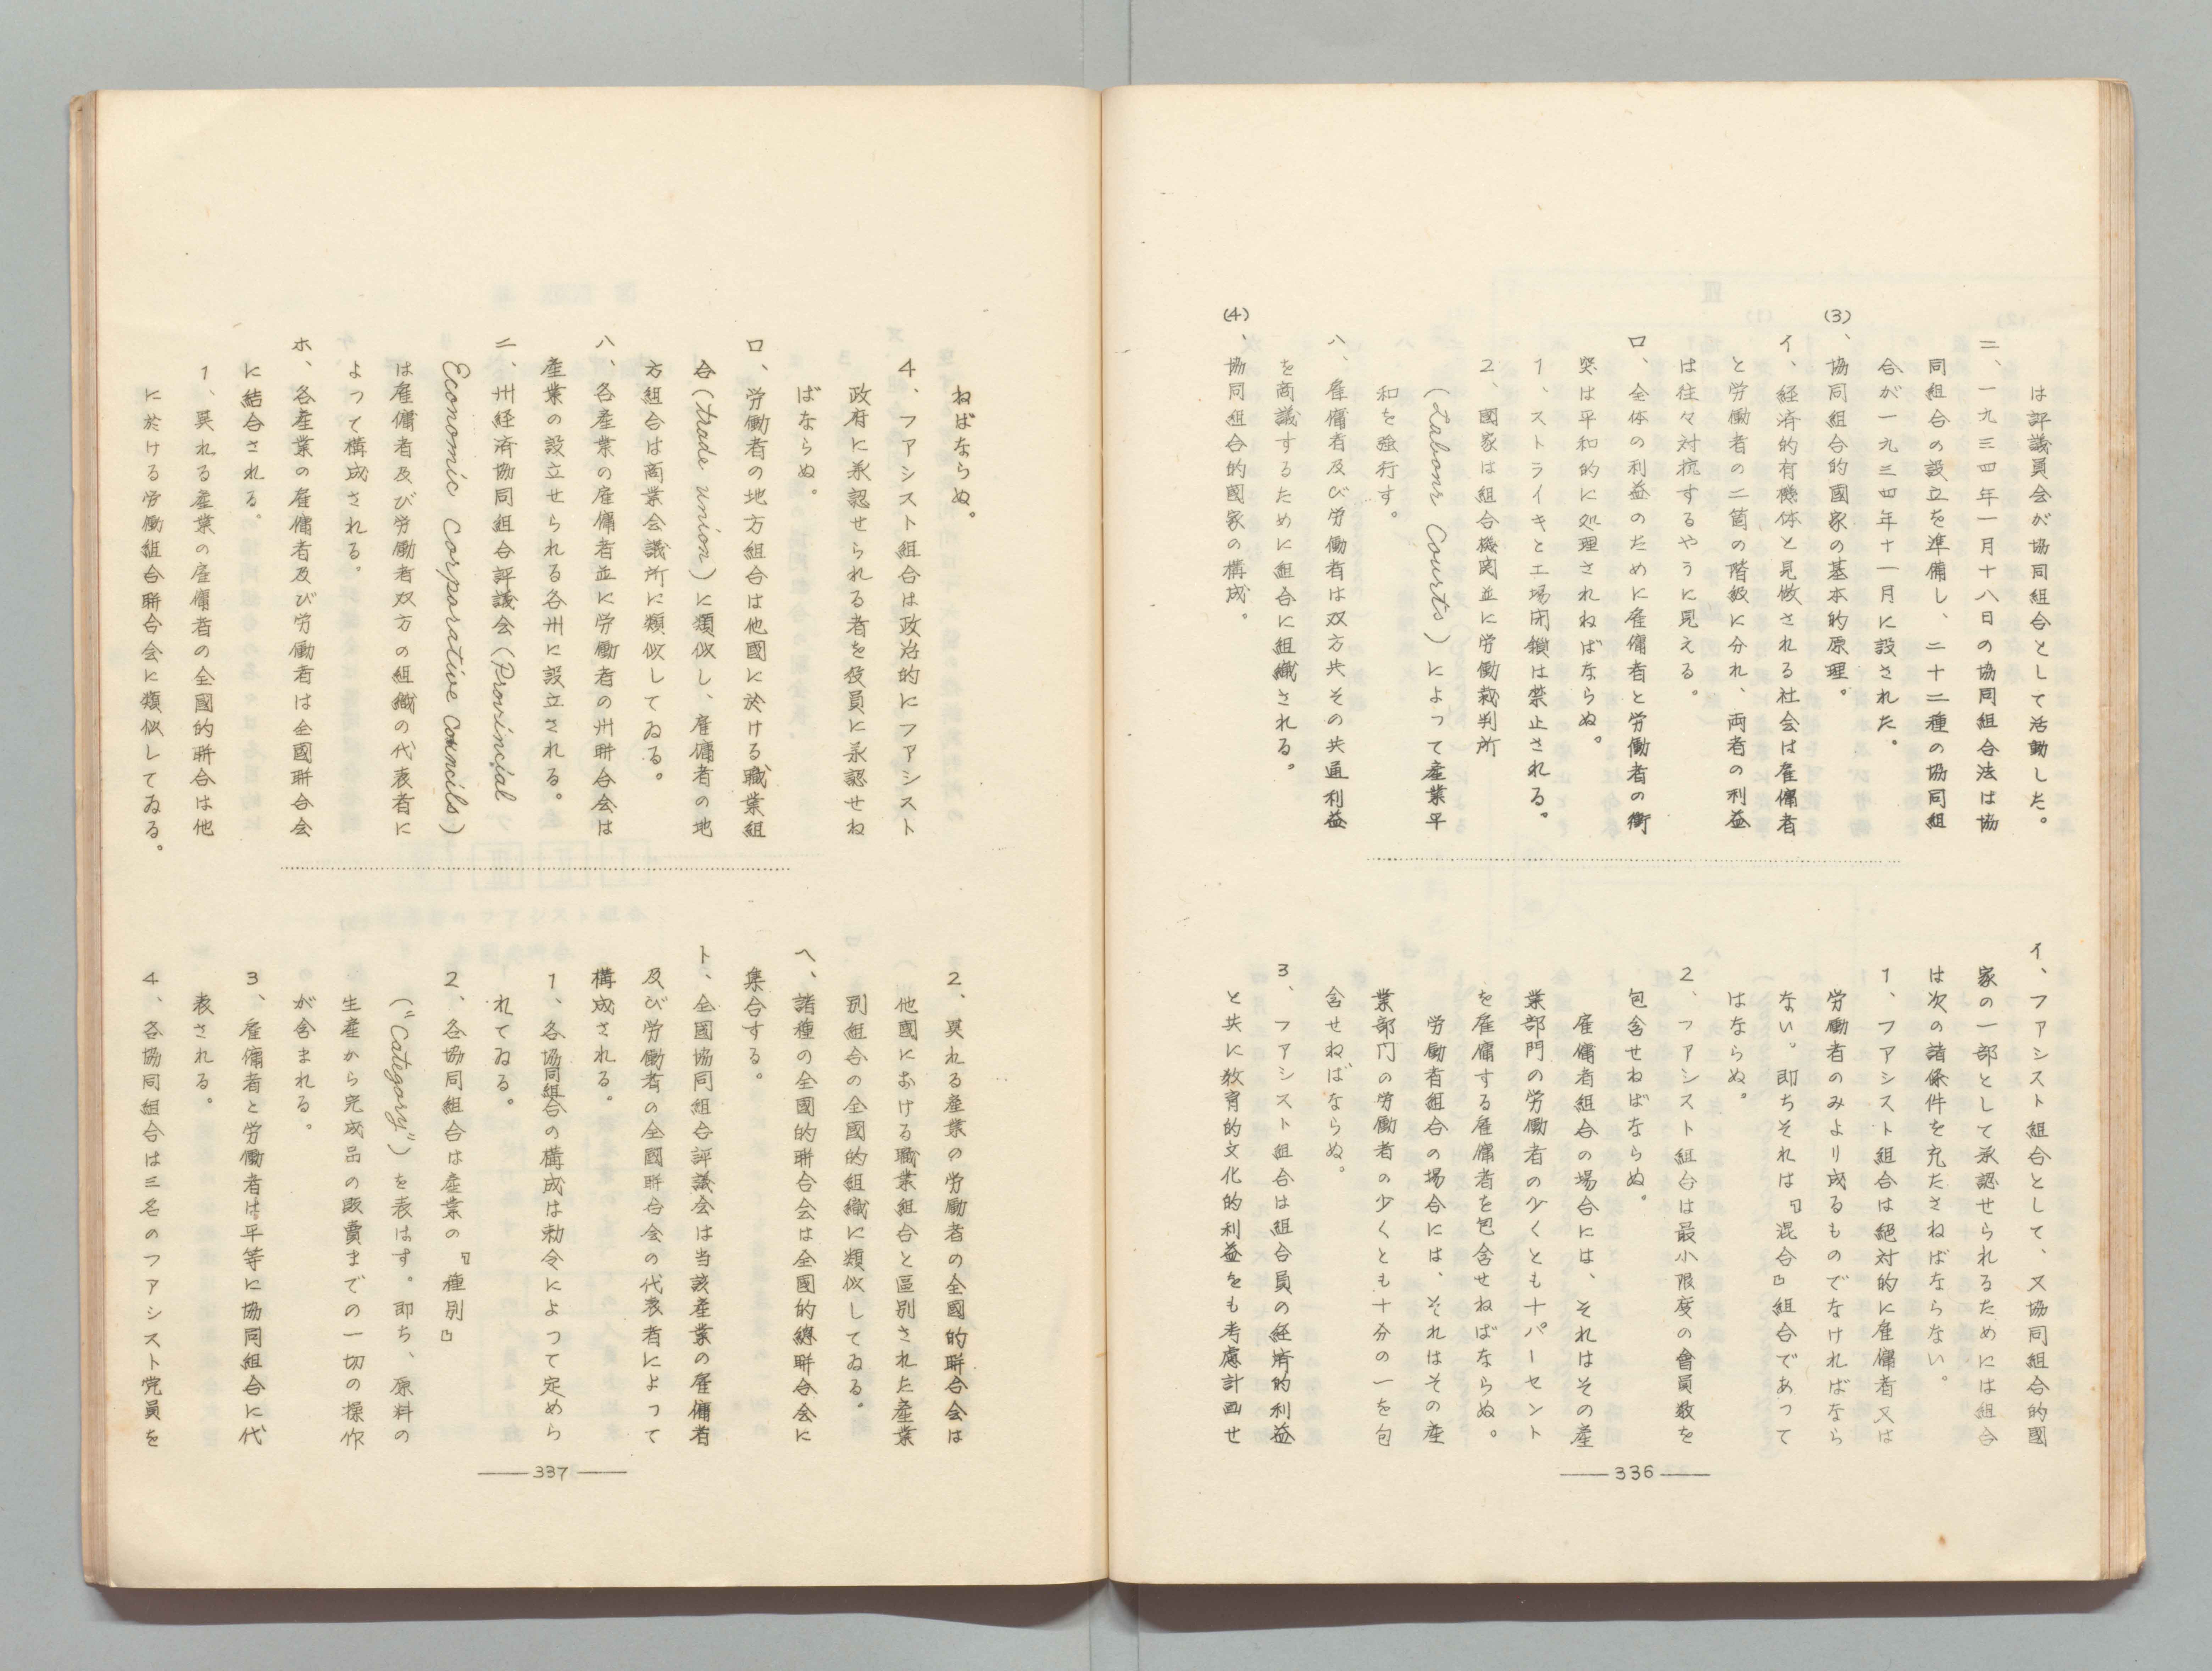 は評議員会が協同組合として活動した。
二、一九三四年一月十八日の協同組合法は協
同組合の設立を準備し、二十二種の協同組
合が一九三四年十一月に設された。
(3)、協同組合的國家の基本的原理。
イ、経済的有機体と見做される社会は雇傭者
と労働者の二箇の階級に分れ、両者の利益
は往々対抗するやうに見える。
ロ、全体の利益のために雇傭者と労働者の衝
突は平和的に処理されねばならぬ。
1、ストライキと工場閉鎖は禁止される。
2、國家は組合機関並に労働裁判所
(Labour Courts)によって産業平
和を強行す。
ハ、雇傭者及び労働者は双方共その共通利益
を商議するために組合に組織される。
(4)、協同組合的國家の構成。
イ、ファシスト組合として、又協同組合的國
家の一部として承認せられるためには組合
は次の諸條件を充たさねばならない。
1、ファシスト組合は絕対的に雇傭者又は
労働者のみより成るものでなければなら
ない。即ちそれは『混合』組合であって
はならぬ。
2、ファシスト組合は最小限度の會員数を
包含せねばならぬ。
雇傭者組合の場合には、それはその産
業部門の労働者の少くとも十パーセント
を雇傭する雇傭者を包含せねばならぬ。
労働者組合の場合には、それはその産
業部门の労働者の少くとも十分の一を包
含せねばならぬ。
3、ファシスト組合は組合員の経済的利益
と共に教育的文化的利益をも考慮計画せ
336
ねばならぬ。
4、ファシスト組合は政治的にファシスト
政府に承認せられる者を役員に承認せね
ばならぬ。
ロ、労働者の地方組合は他國に於ける職業組
合(trade union)に類似し、雇傭者の地
方組合は商業会議所に類似してゐる。
ハ、各産業の雇傭者並に労働者の州聯合会は
産業の設立せられる各州に設立される。
ニ、州経済協同組合評議会(Provincial
Economic Corporative Councils)
は雇傭者及び労働者双方の組織の代表者に
よって構成される。
ホ、各産業の雇傭者及び労働者は全國聯合会
に結合される。
1、異れる産業の雇傭者の全國的聯合は他
に於ける労働組合聯合会に類似してゐる。
2、異れる産業の労働者の全國的聯合会は
他國における職業組合と區別された産業
別組合の全國的組織に類似してゐる。
ヘ、諸種の全國的聯合会は全國的總聯合会に
集合する。
ト、全國協同組合評議会は当該産業の雇傭者
及び労働者の全國聯合会の代表者によって
構成される。
1、各協同組合の構成は勅令によって定めら
れてゐる。
2、各協同組合は産業の『種別』
("Category")を表はす。即ち、原料の
生産から完成品の販賣までの一切の操作
が含まれる。
3、雇傭者と労働者は平等に協同組合に代
表される。
4、各協同組合は三名のファシスト党員を
337